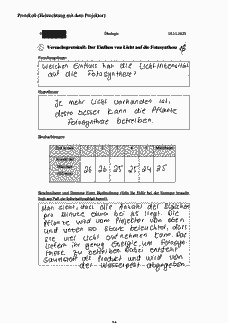 Protokoll (Beleuchtung mit dem Projektor)
Ökologie
Versuchsprotokoll: Der Einfluss von Licht auf die Fotosynthese
Welchen Einfluss hat die Lichtintensität
auf die Fotosynthese?
Hypothese
Je mehr Licht vorhanden ist,
desto besser kann die Pflanze
Fotosynthese betreiben.
Beobachtungen
26 26 25 25 24 25
Man sieht, dass die Anzahl der Bläschen
pro Minute etwa bei 25 liegt. Die
Pflanze wird vom Projektor von oben
und unten so stark beleuchtet, dass
sie viel Licht aufnehmen kann. Das
liefert ihr genug Energie, um Fotosyn-
these zu betreiben. Dabei entsteht
Sauerstoff als Produkt und wird von
der Wasserpest abgegeben.